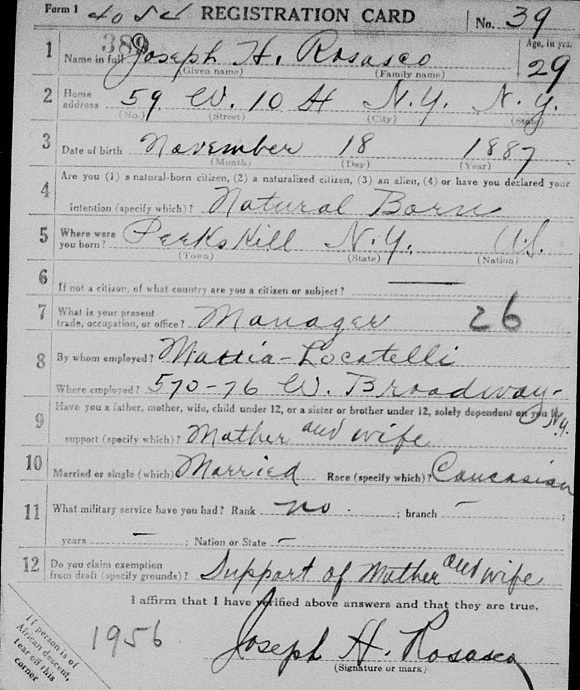 Form 1 REGISTRATION CARD No. 39
389
1 Name in full Joseph H. Rosasco Age, in yrs. 29
(Given name) (Family name)
2 Home address 59 W. 10 St N.Y. N.Y.
(No.) (Street) (City) (State)
3 Date of birth November 18 1887
(Month) (Day) (Year)
4 Are you (1) a natural-born citizen, (2) a naturalized citizen, (3) an alien, (4) or have you declared your
intention (specify which)? Natural Born
5 Where were you born? Peekskill N.Y. U.S.
(Town) (State) (Nation)
6 If not a citizen, of what country are you a citizen or subject? —
7 What is your present trade, occupation, or office? Manager 26
8 By whom employed? Mattia-Locatelli
Where employed? 570-76 W. Broadway- N.Y.
9 Have you a father, mother, wife, child under 12, or a sister or brother under 12, solely dependent on you for
support (specify which)? Mother and wife
10 Married or single (which) Married Race (specify which)? Caucasian
11 What military service have you had? Rank no. ; branch — ;
years — ; Nation or State —
12 Do you claim exemption from draft (specify grounds)? Support of Mother and wife
I affirm that I have verified above answers and that they are true.
1956 Joseph H. Rosasco
(Signature or mark)
If person is of
African descent,
tear off this
corner